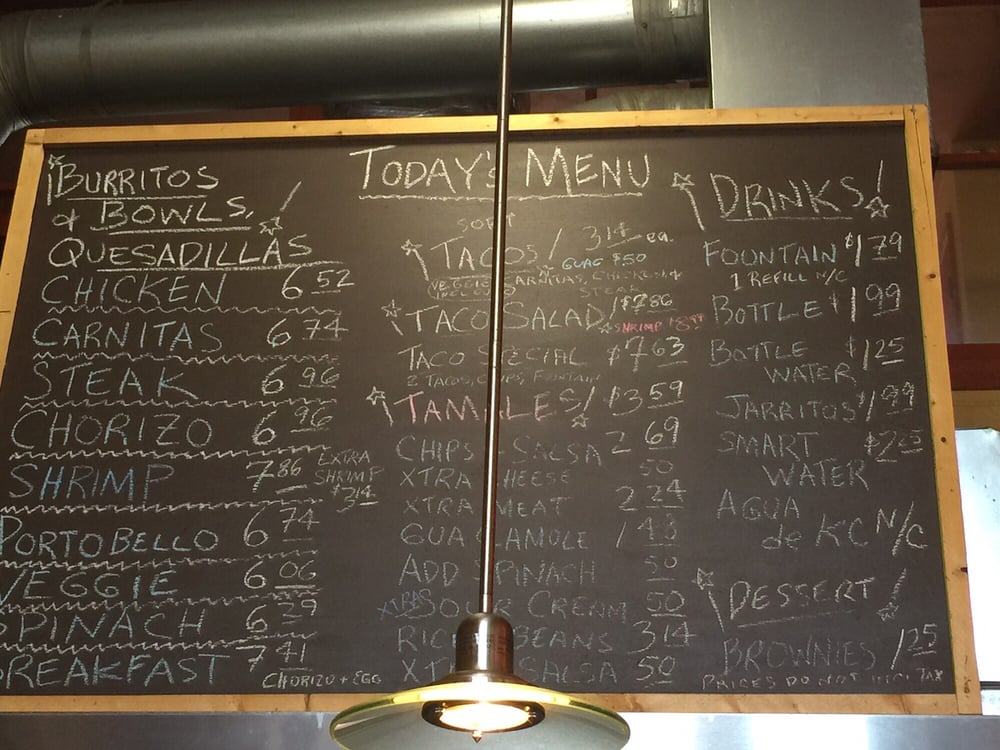 BURRITOS
& BOWLS,
QUESADILLAS
CHICKEN 6 52
CARNITAS 6 74
STEAK 6 96
CHORIZO 6 96
SHRIMP 7 86 EXTRA
SHRIMP
$3 14
PORTOBELLO 6 74
VEGGIE 6 06
SPINACH 6 29
BREAKFAST 7 41 CHORIZO + EGG
TODAY'S MENU
SOFT
TACOS 3 14 ea.
GUAC $ 50
VEGGIE, CARNITAS, CHICKEN
STEAK
TACO SALAD $7 86
SHRIMP
TACO SPECIAL $7 63
2 TACOS, CHIPS, FOUNTAIN
TAMALES! $3 59
CHIPS SALSA 2 69
XTRA CHEESE 50
XTRA MEAT 2 24
GUACAMOLE 1
ADD SPINACH 50
XTRA SOUR CREAM 50
RICE BEANS 3 14
XTRA SALSA 50
DRINKS!
FOUNTAIN $1 79
1 REFILL N/C
BOTTLE $1 99
BOTTLE $1 25
WATER
JARRITOS $1 99
SMART $2 25
WATER
AGUA
de KC N/C
DESSERT
BROWNIES 1 25
PRICES DO NOT INCL TAX